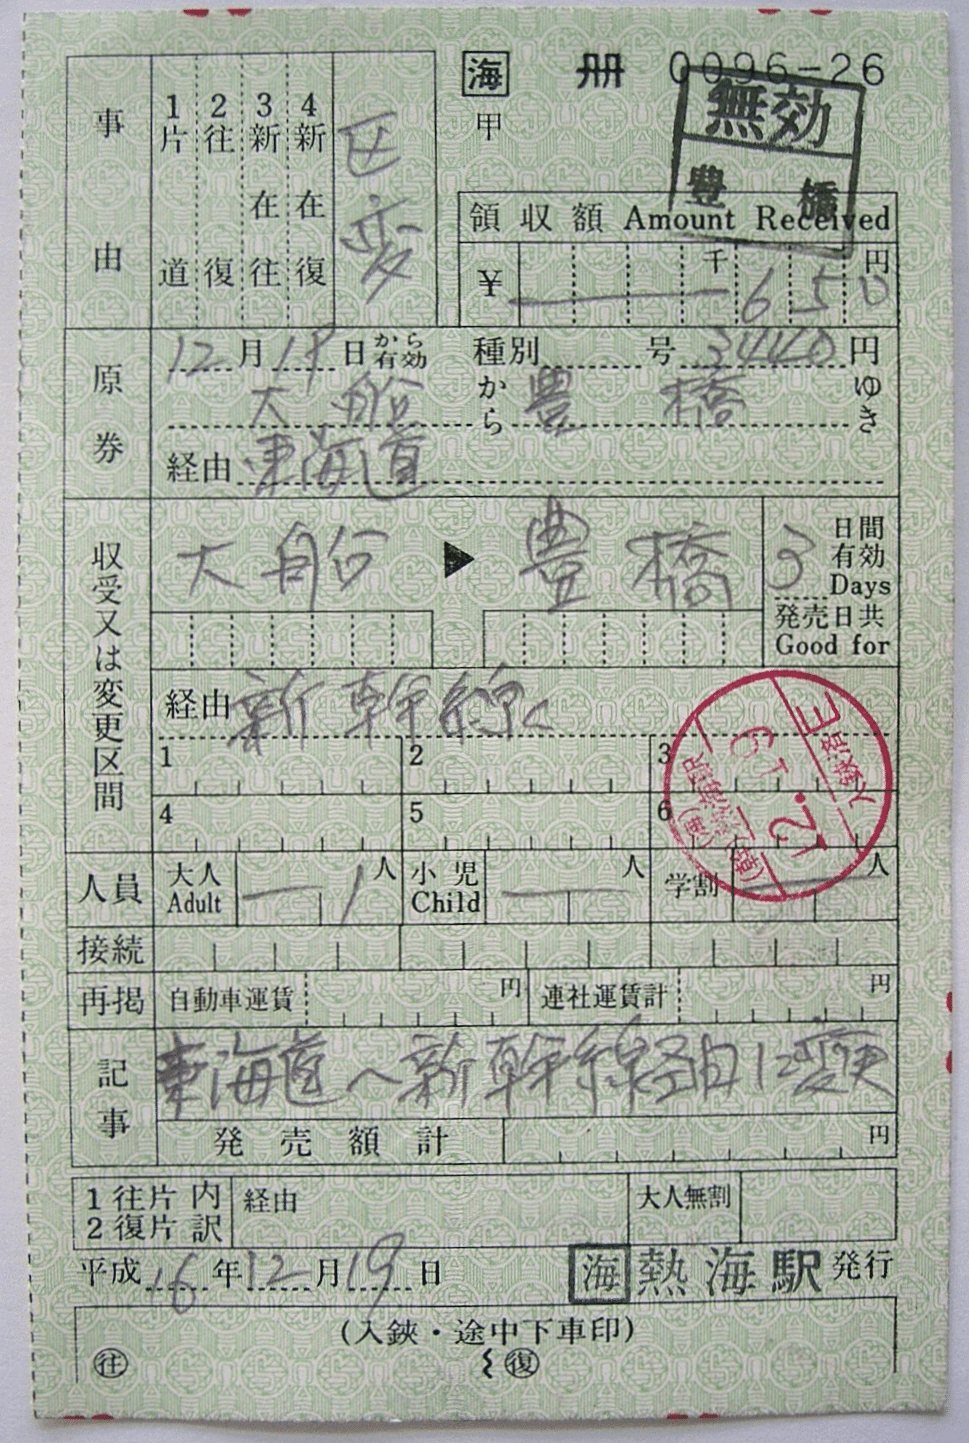 海 冊 0096-26
甲
無効
豊橋
事由
1片道
2往復
3新在往
4新在復
区変
領収額 Amount Received
¥ 千 650 円
原券
12月19日から有効 種別 号 3440円
大船から豊橋ゆき
経由 東海道
収受又は変更区間
大船 ▶ 豊橋
3日間有効 Days
発売日共
Good for
経由 新幹線
1 2 3
4 5 6
12.19
入鋏済
人員 大人 Adult 1人 小児 Child 人 学割 人
接続
再掲 自動車運賃 円 連社運賃計 円
記事
東海道へ新幹線経由に変更
発売額計 円
1往片内
2復片訳
経由
大人無割
平成16年12月19日
海 熱海駅 発行
(入鋏・途中下車印)
往 復